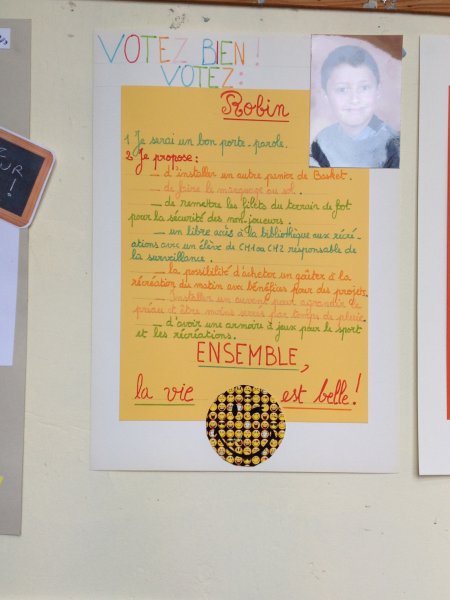 VOTEZ BIEN !
VOTEZ :
Robin
1 Je serai un bon porte-parole.
2 Je propose :
_ d'installer un autre panier de Basket.
_ de faire le marquage au sol.
_ de remettre les filets du terrain de foot
pour la sécurité des non-joueurs.
_ un libre accès à la bibliothèque aux récré-
ations avec un élève de CM1 ou CM2 responsable de
la surveillance.
_ la possibilité d'acheter un goûter à la
récréation du matin avec bénéfices pour des projets.
_ Installer un auvent pour agrandir le
préau et être moins serrés par temps de pluie.
_ d'avoir une armoire à jeux pour le sport
et les récréations.
ENSEMBLE,
la vie est belle !